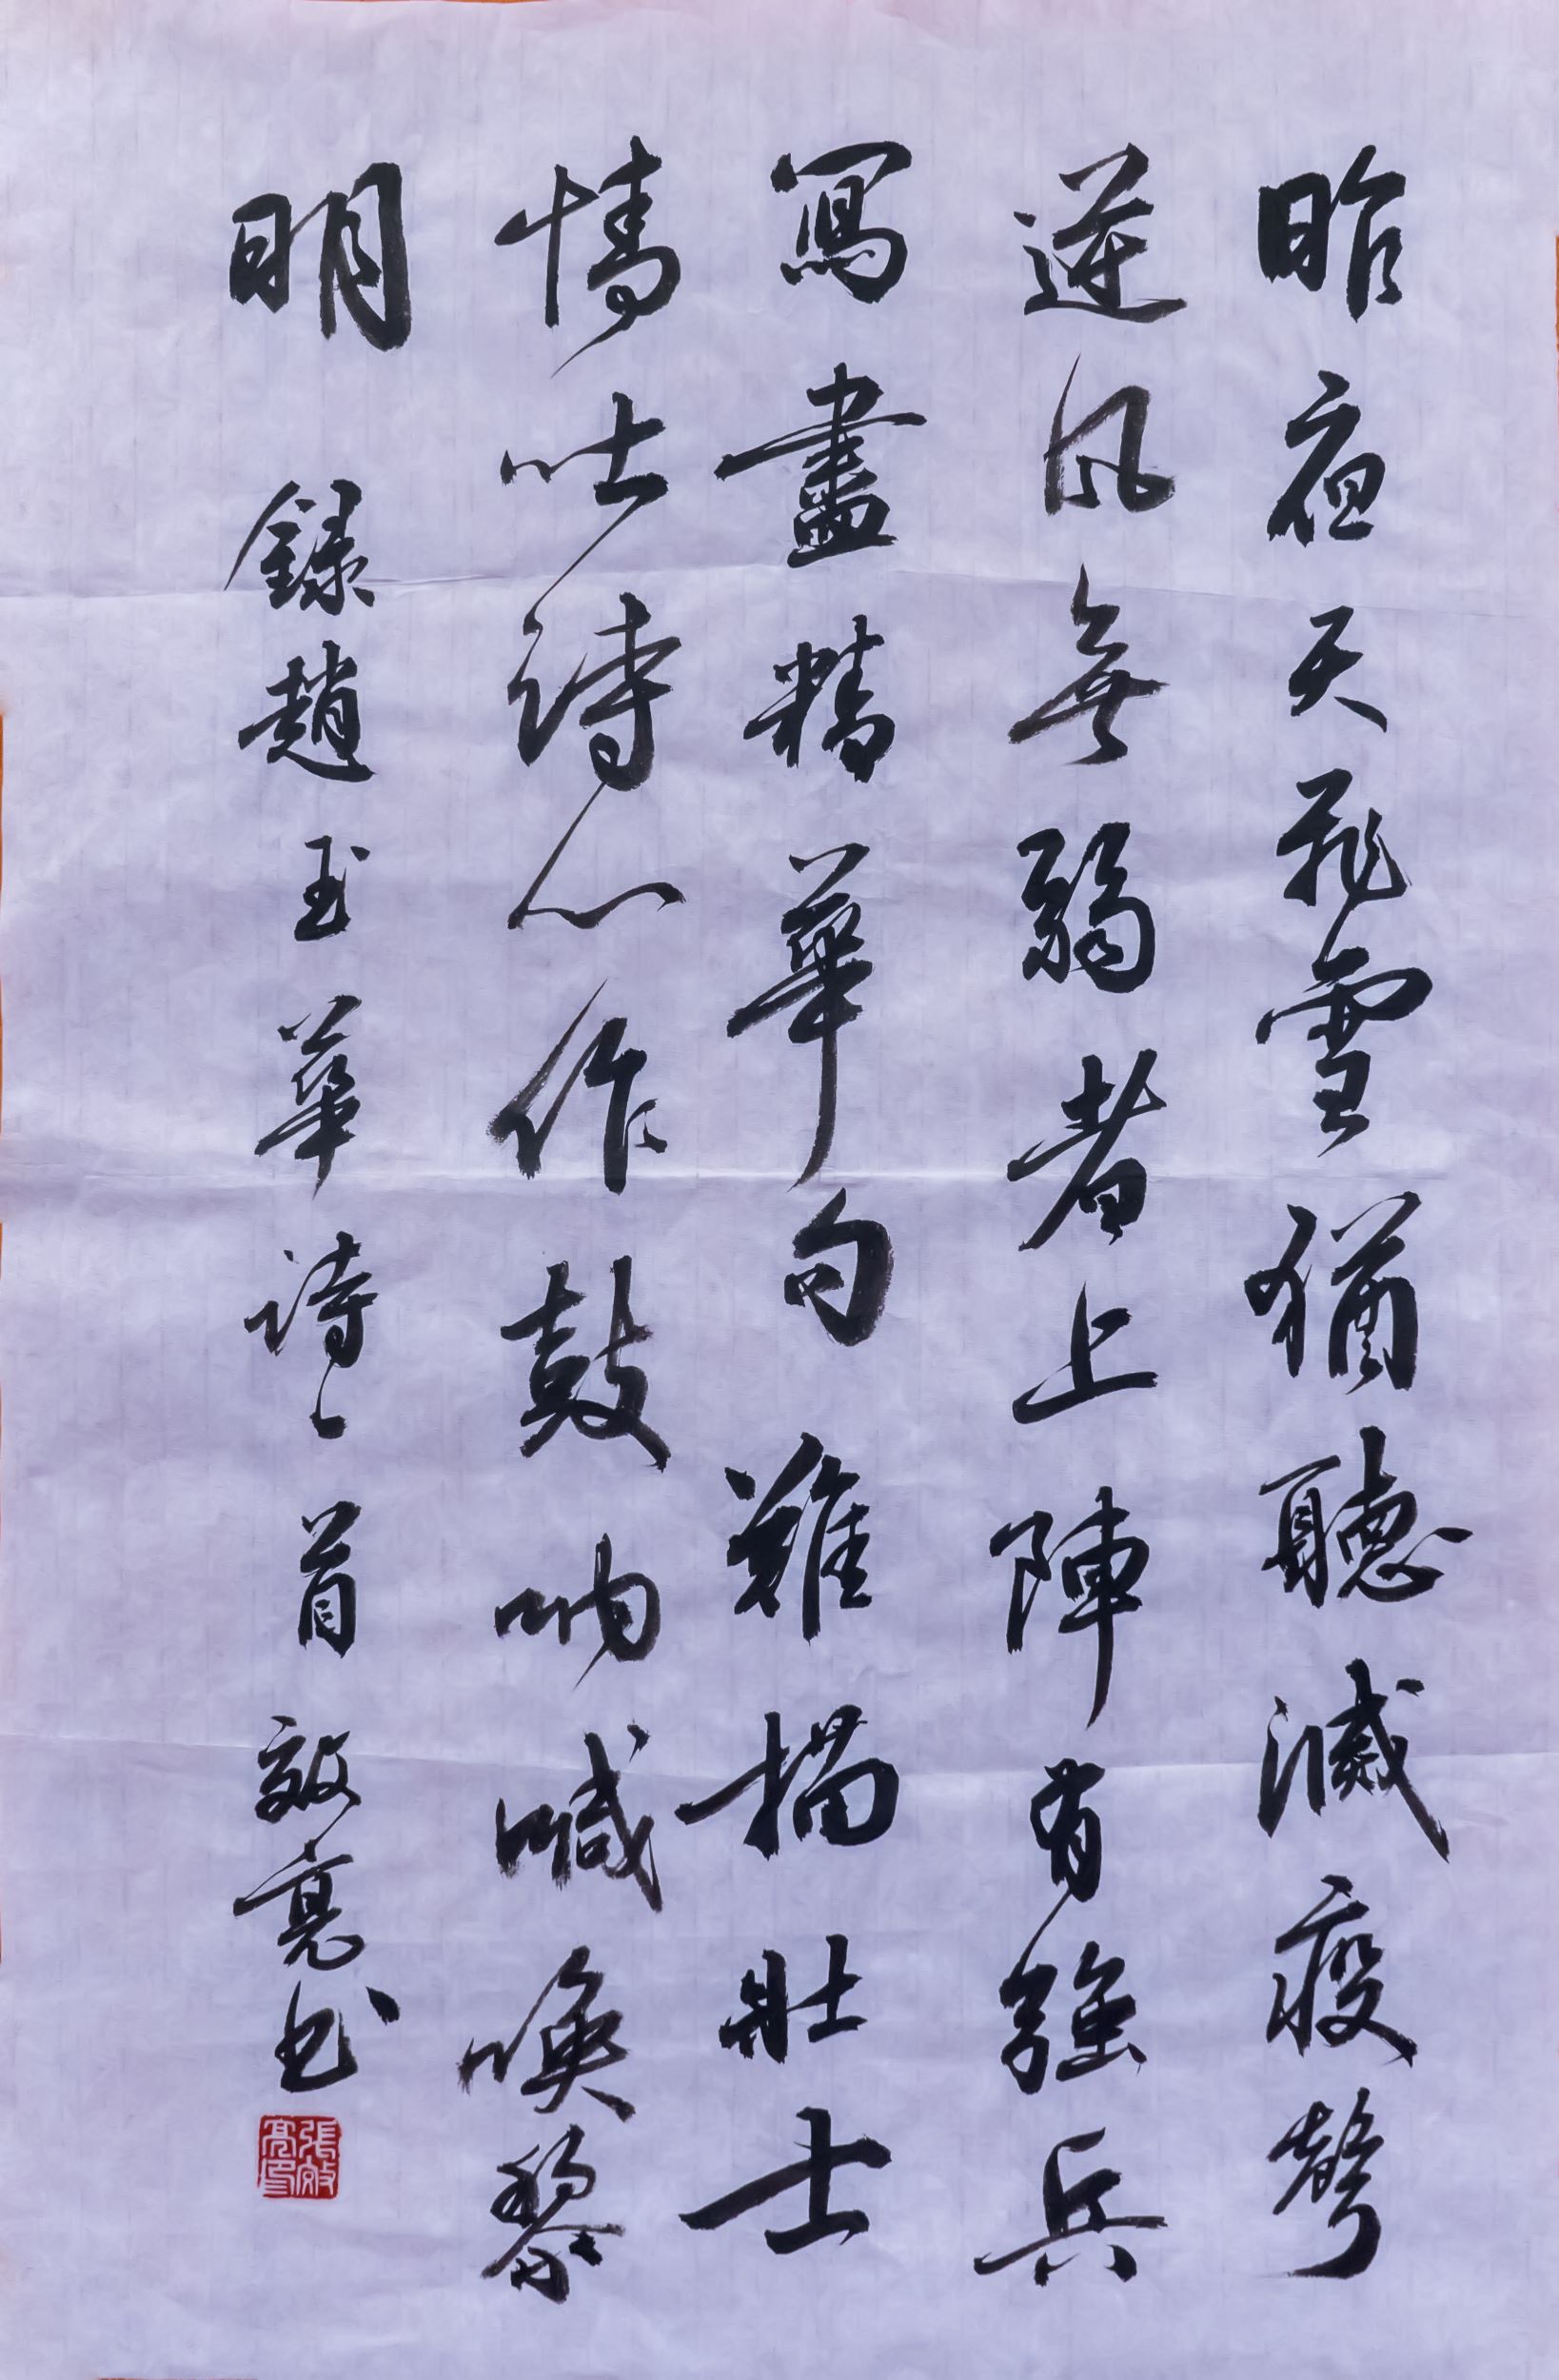 昨夜天飛雪猶聽滅疫聲
逆風無弱者上陣有強兵
寫盡精華句難描壯士
情吐詩心作鼓吶喊喚黎
明
錄趙玉華詩一首 效亮書
張效亮印